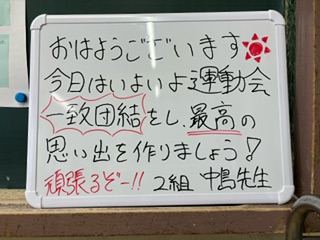 おはようございます
今日はいよいよ運動会
一致団結をし、最高の
思い出を作りましょう!
頑張るぞー!! 2組 中島先生